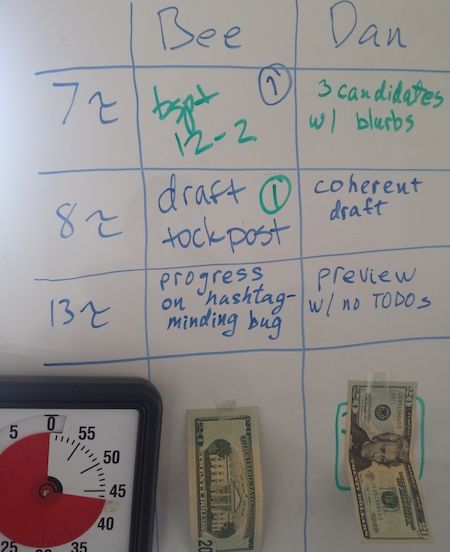 Bee Dan
7 τ
tspt
12-2
1
3 candidates
w/ blurbs
8 τ
draft 1
tock post
coherent
draft
13 τ
progress
on hashtag-
minding bug
preview
w/ no TODOs
5 0 55
50
45
40
25 30 35
20
20
20